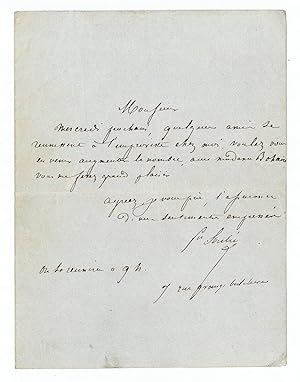 Monsieur
Mercredi prochain, quelques amis se
reunissent à l'improviste chez moi voulez vous
en venir augmenter le nombre avec madame
vous me ferez grand plaisir
agreez je vous prie l'assurance
de mes sentiments empressés
on se reunira à 9 h.
7 rue